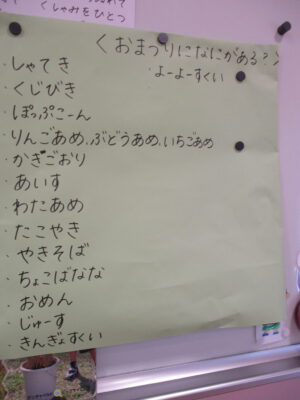 くしゃみをひとつ
<おまつりになにがある?>
・よーよーすくい
・しゃてき
・くじびき
・ぽっぷこーん
・りんごあめ、ぶどうあめ、いちごあめ
・かきごおり
・あいす
・わたあめ
・たこやき
・やきそば
・ちょこばなな
・おめん
・じゅーす
・きんぎょすくい